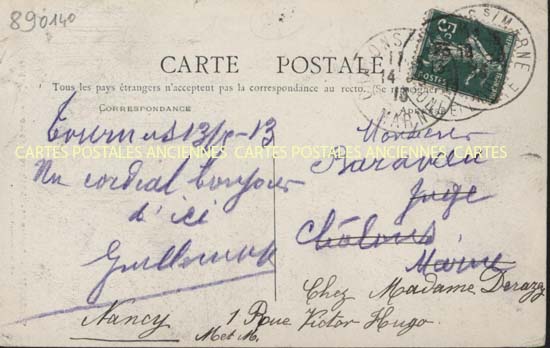 890140
CARTE POSTALE
Tous les pays étrangers n'acceptent pas la correspondance au recto. (Se renseigner
CORRESPONDANCE
5c
POSTES
S/MARNE
MARNE
17
14
13
CARTES POSTALES ANCIENNES CARTES POSTALES ANCIENNES CARTES POSTALES ANCIENNES
13
Un cordial bonjour
d'ici
Monsieur
Juge
Châlons
Marne
Chez Madame
Nancy 1 Rue Victor Hugo.
M et M.